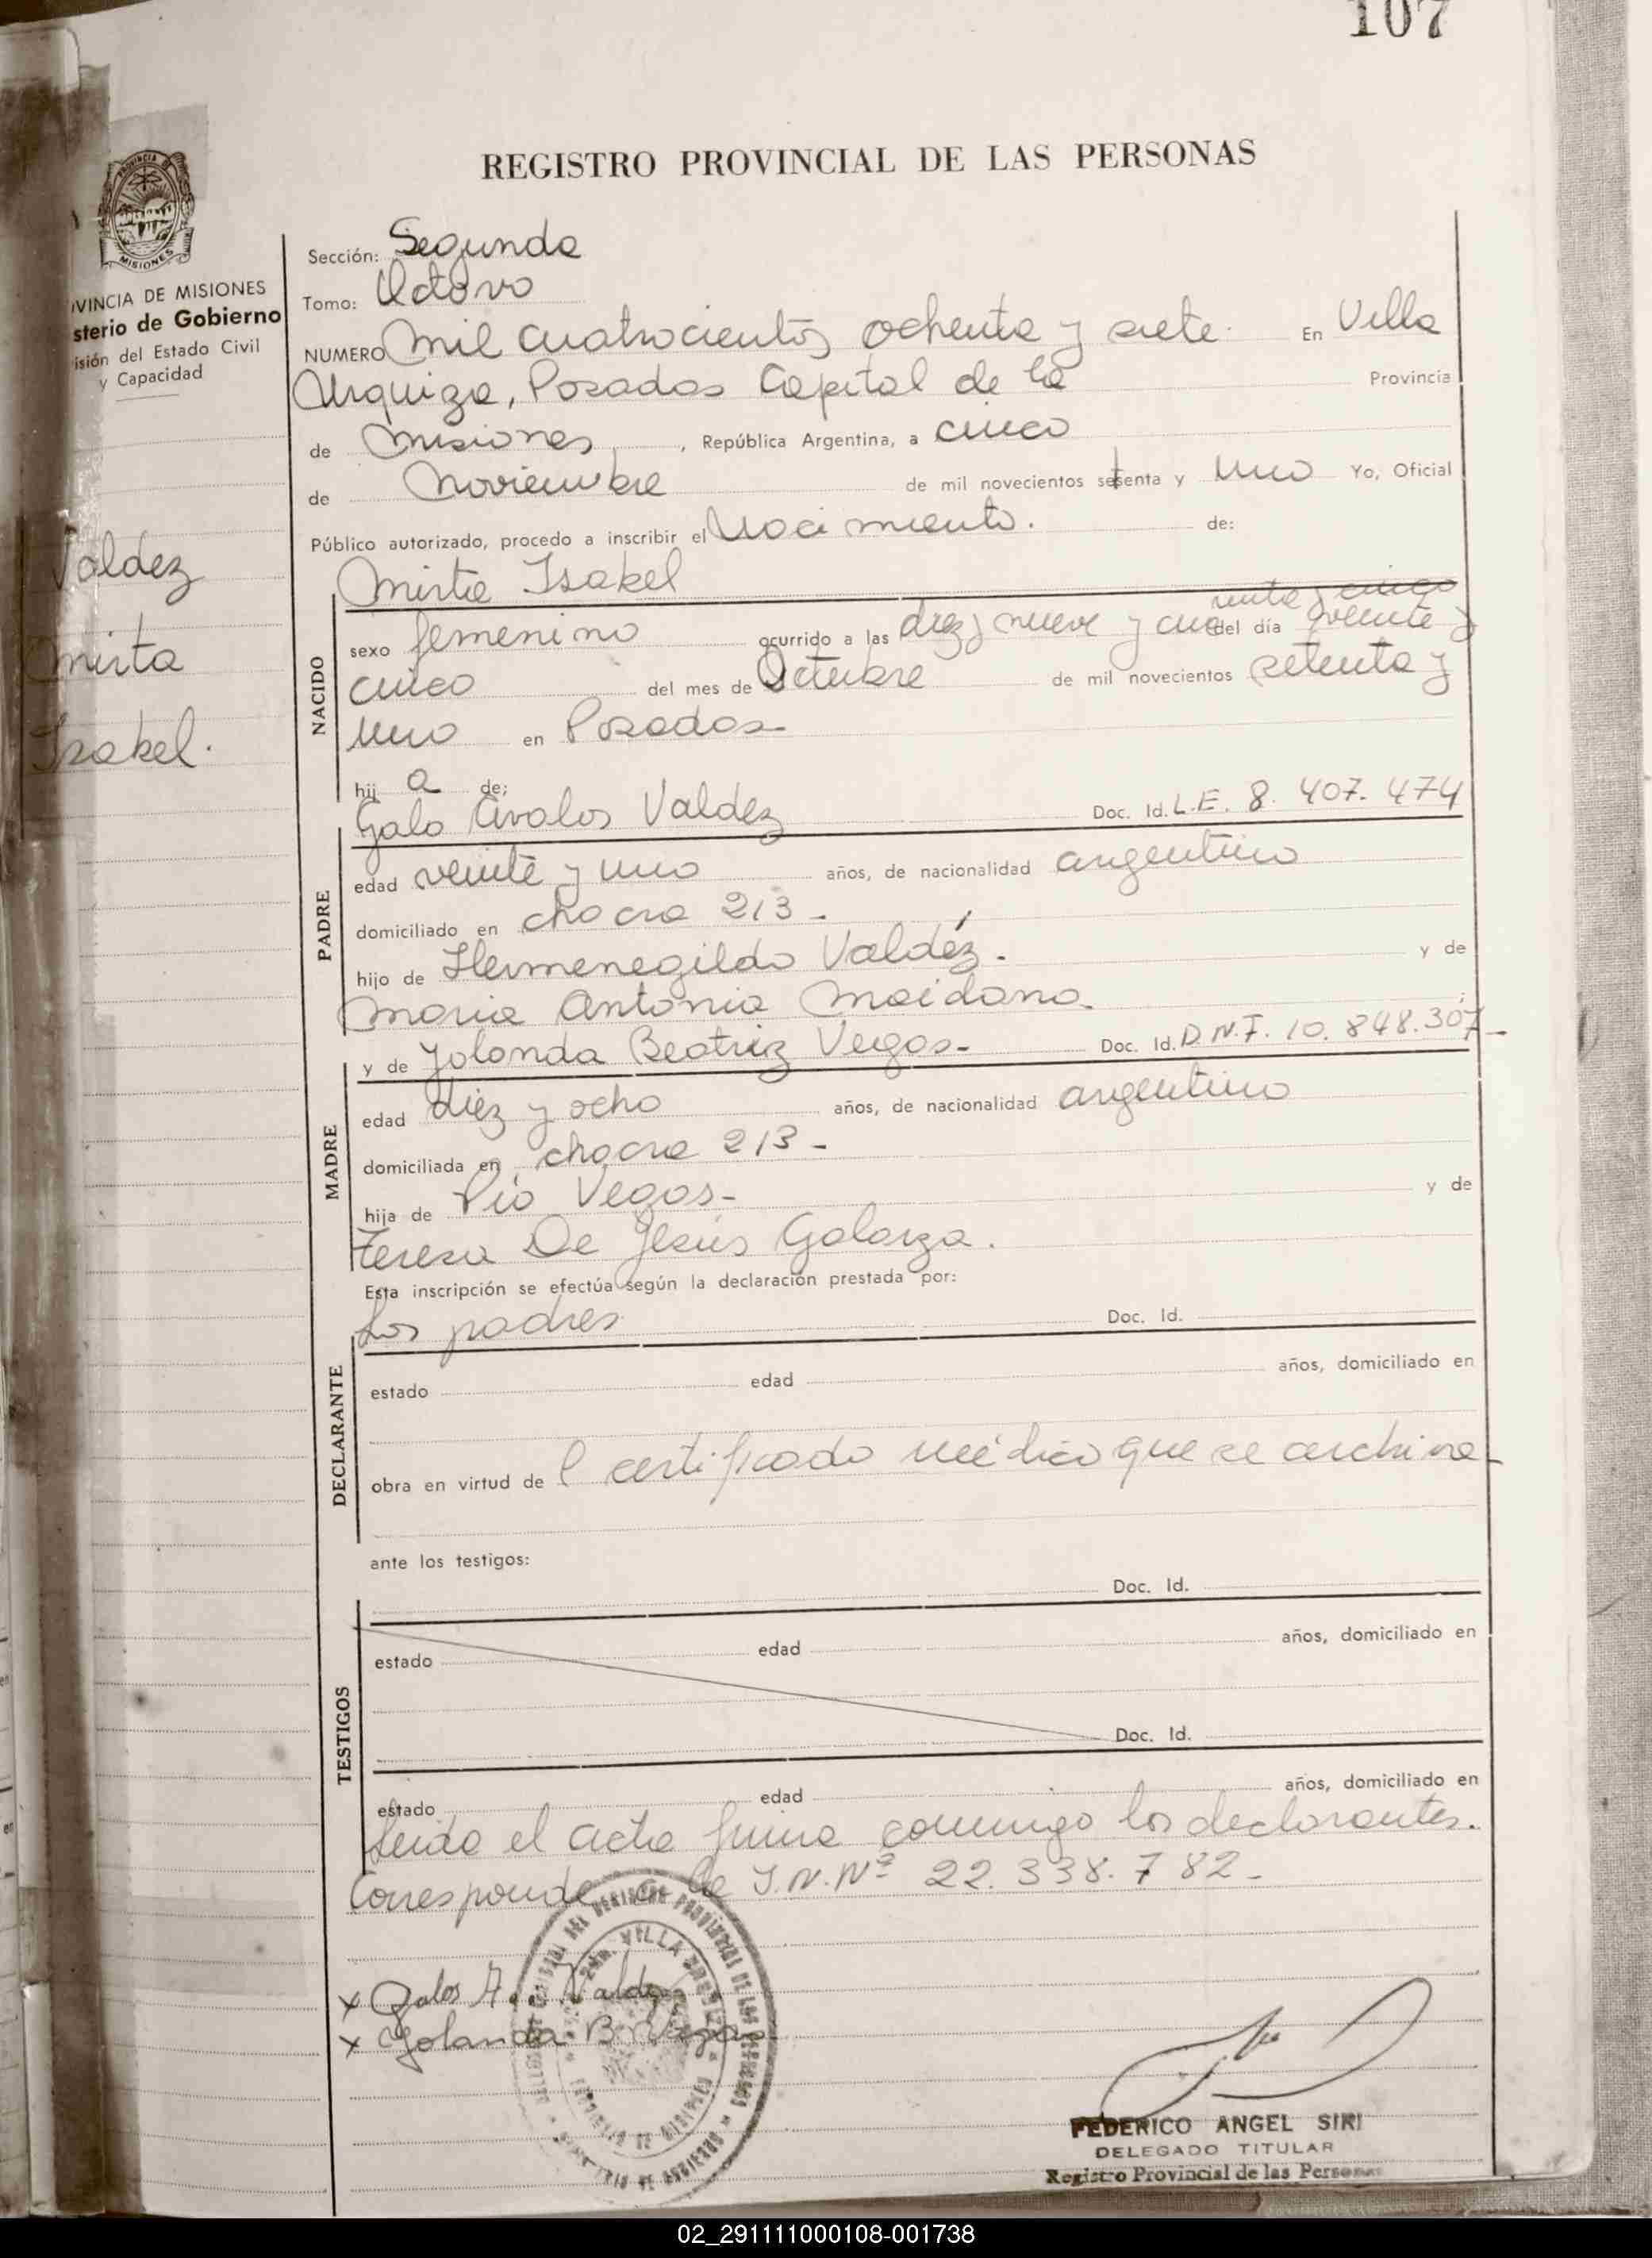 107
REGISTRO PROVINCIAL DE LAS PERSONAS
MISIONES
VINCIA DE MISIONES
sterio de Gobierno
isión del Estado Civil
y Capacidad
Valdez
Mirta
Isabel.
Sección: Segunda
Tomo: Octavo
NUMERO Mil cuatrocientos ochenta y siete. En Villa
Urquiza, Posadas Capital de la Provincia
de Misiones, República Argentina, a cinco
de Noviembre de mil novecientos setenta y uno Yo, Oficial
Público autorizado, procedo a inscribir el Nacimiento. de:
Mirta Isabel
NACIDO
sexo femenino ocurrido a las diez y nueve y cua del día veinte y
cinco del mes de Octubre de mil novecientos setenta y
uno en Posadas-
hij a de:
PADRE
Galo Avalos Valdez Doc. Id. L.E. 8. 407. 474
edad veinte y uno años, de nacionalidad argentino
domiciliado en chacra 213-
hijo de Hermenegildo Valdéz. y de
Maria Antonia Maidana.
MADRE
y de Yolanda Beatriz Vegas- Doc. Id. D.N.I. 10. 848.307-
edad diez y ocho años, de nacionalidad argentino
domiciliada en chacra 213-
hija de Pío Vegas- y de
Teresa De Jesús Galarza.
Esta inscripción se efectúa según la declaración prestada por:
DECLARANTE
Los padres Doc. Id.
estado edad años, domiciliado en
obra en virtud de l certificado médico que se archiva-
ante los testigos:
Doc. Id.
TESTIGOS
estado edad años, domiciliado en
Doc. Id.
estado edad años, domiciliado en
Leida el acta firma conmigo los declarantes.
Corresponde a la I.N.Nº 22.338.782-
x Galos A. Valdez
x Yolanda B. Vegas
FEDERICO ANGEL SIRI
DELEGADO TITULAR
Registro Provincial de las Personas
02_291111000108-001738